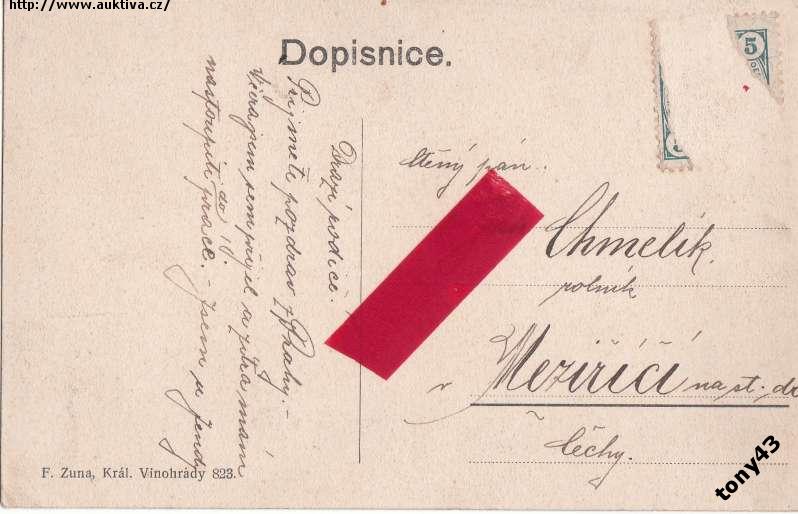 http://www.auktiva.cz/
Dopisnice.
5
Drazí rodiče.
Přijměte pozdrav z Prahy. -
Včera jsem sem přijel a zítra mám
do
nastoupiti práce. - Jsem u Jendy
Ctěný pán..
Chmelík.
rolník
v Meziříčí na st. dr
Čechy.
F. Zuna, Král. Vinohrády 823.
tony43